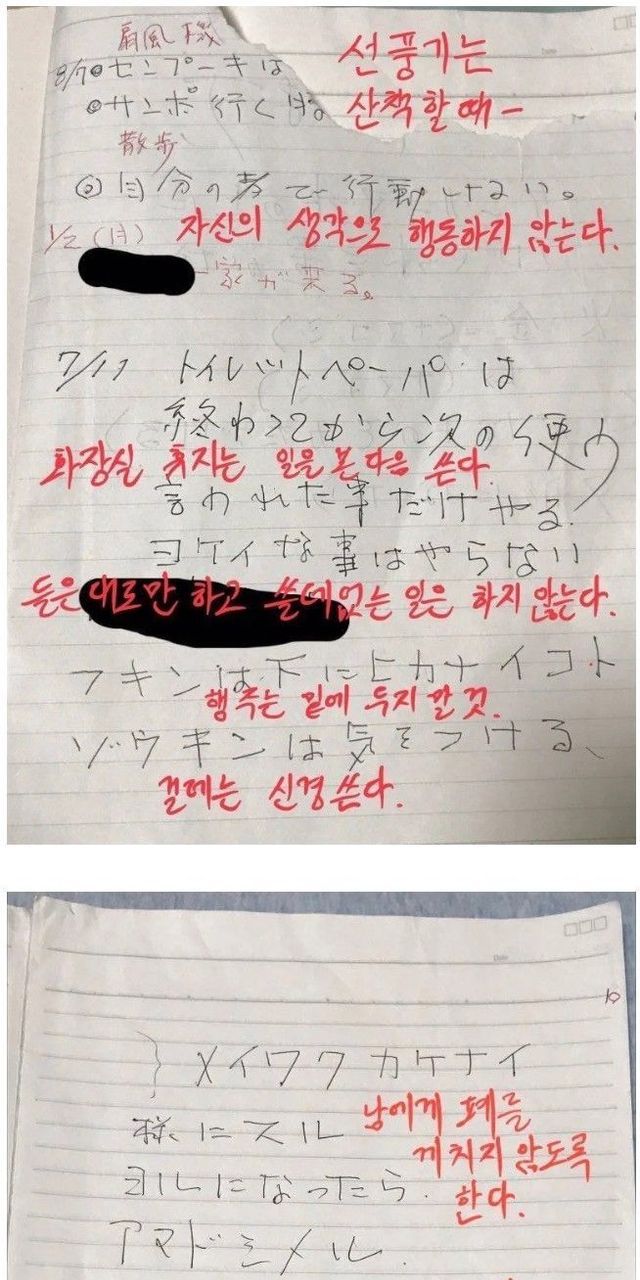 扇風機
8/7◎センプーキは
선풍기는
◎サンポ行く時は
산책할 때-
散歩
◎自分の考で行動しない。
1/2(月)
자신의 생각으로 행동하지 않는다.
一家が来る。
7/17 トイレットペーパーは
終わってから次の使う
화장실 휴지는 일을 본 다음 쓴다.
言われた事だけやる.
ヨケイな事はやらない
들은대로만 하고 쓸데없는 일은 하지 않는다.
フキンは下にヒカナイコト
행주는 밑에 두지 말 것.
ゾウキンは気をつける、
걸레는 신경쓴다.
Date
メイワクカケナイ
様にスル
남에게 폐를
끼치지 않도록
ヨルになったら.
한다.
アマドシメル.